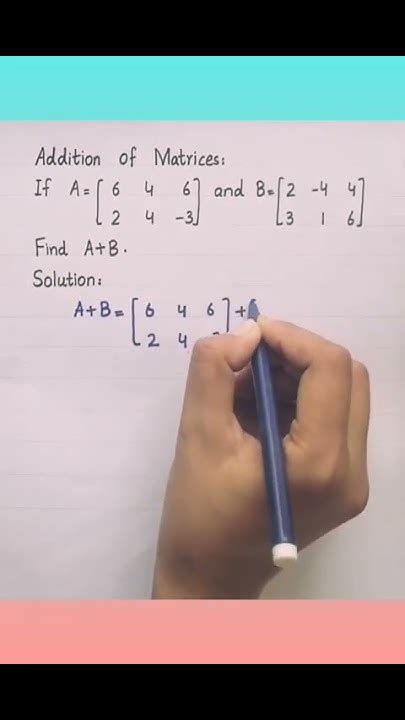 Addition of Matrices:
If A=[6 4 6] and B=[2 -4 4]
[2 4 -3] [3 1 6]
Find A+B.
Solution:
A+B=[6 4 6]+[
[2 4